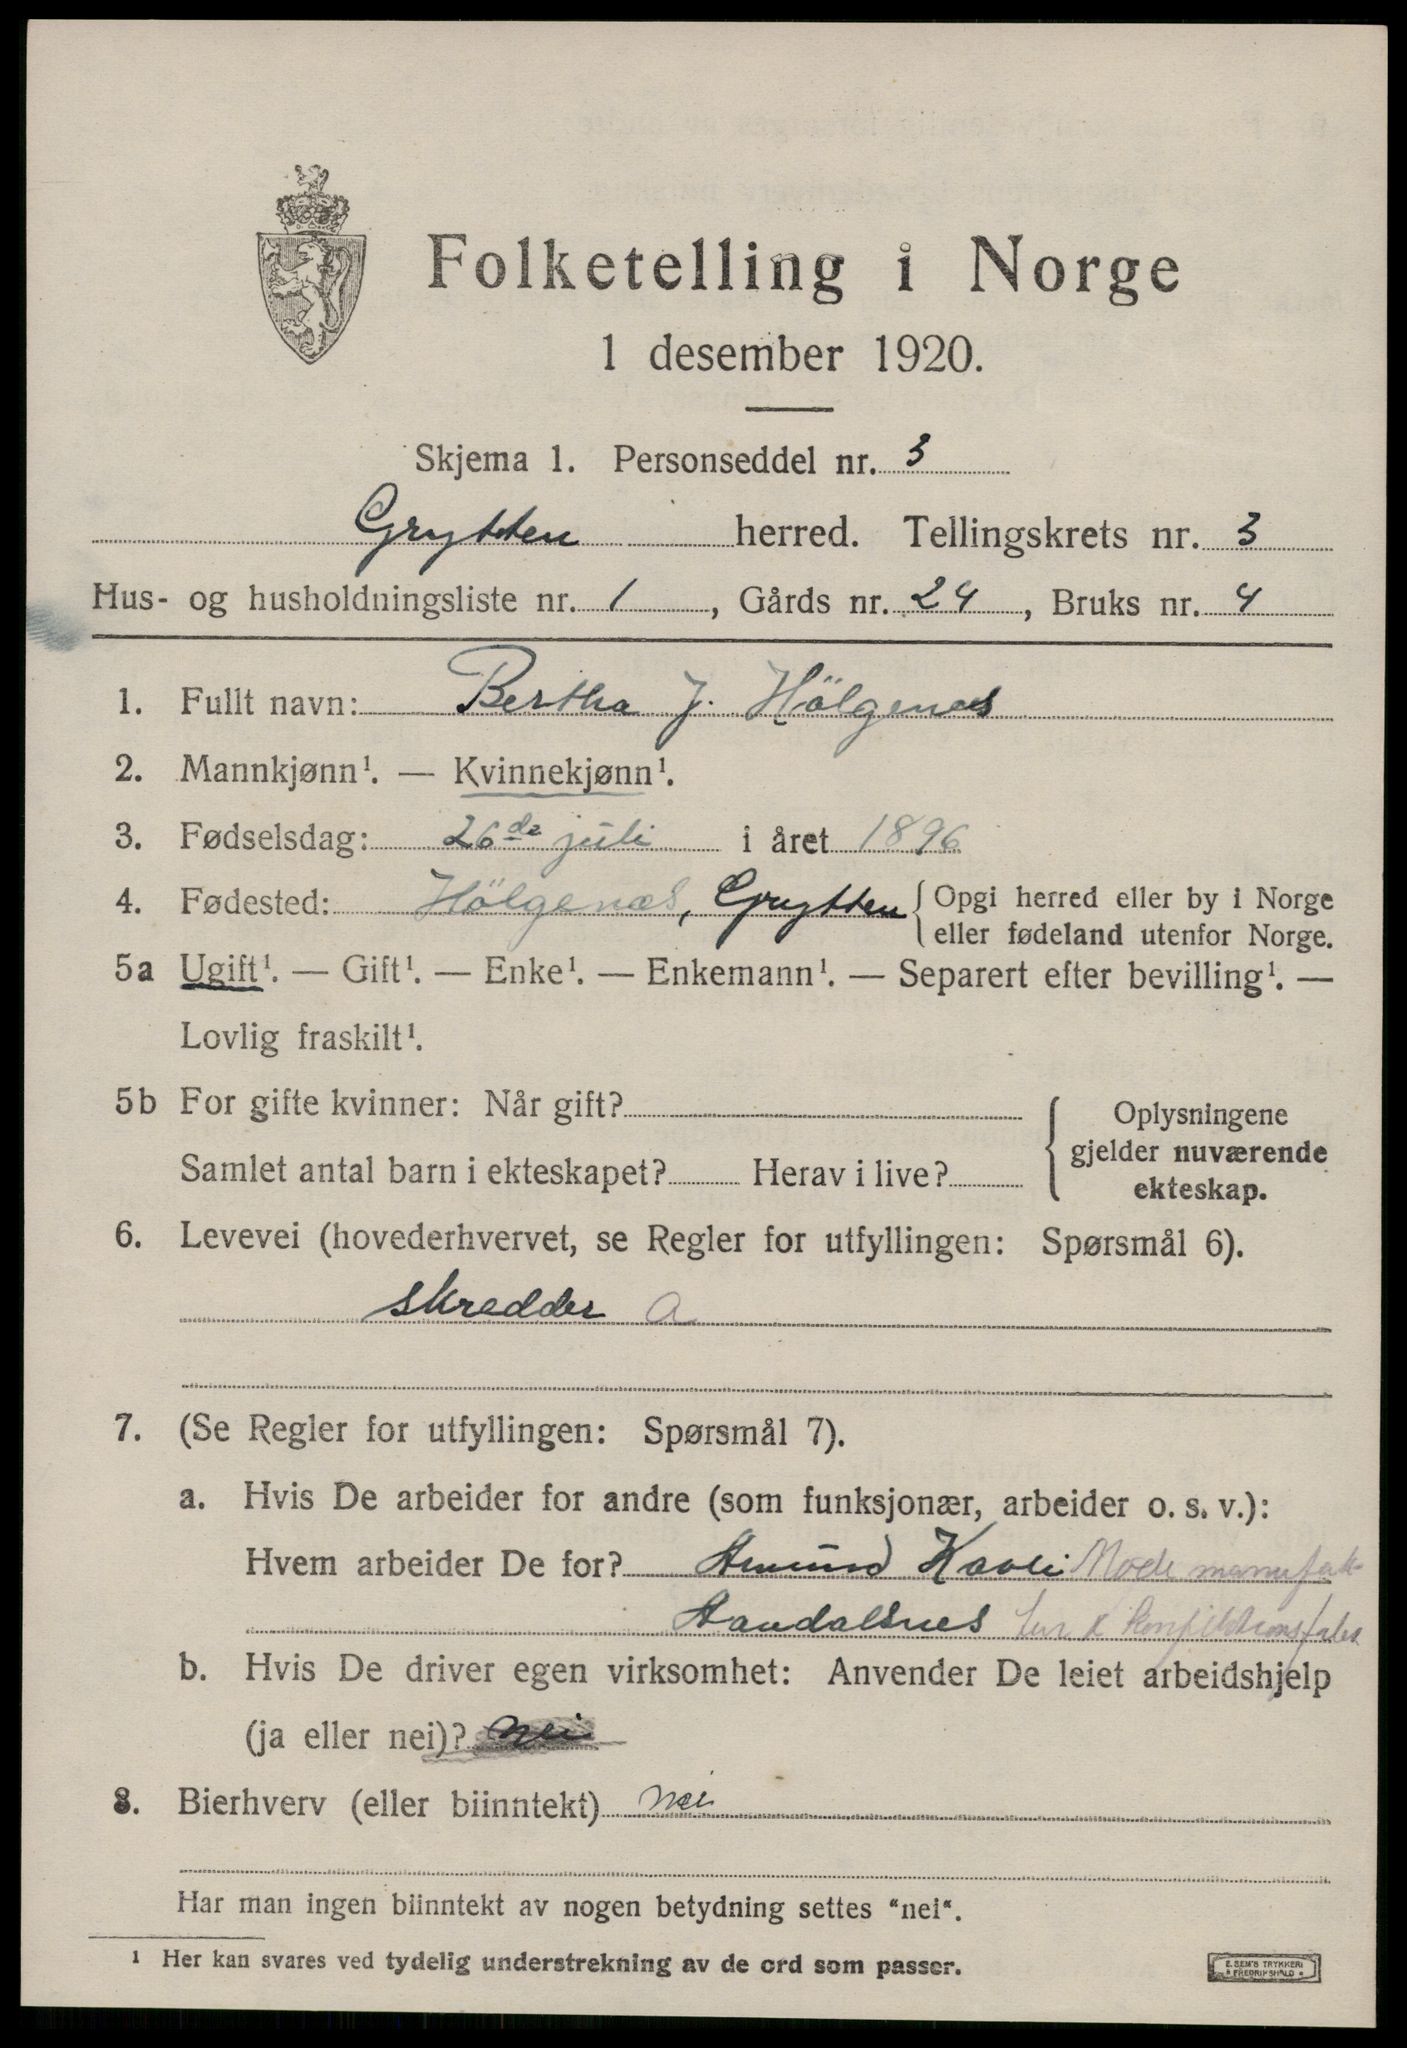 Folketelling i Norge
1 desember 1920.
Skjema 1. Personseddel nr. 3
Grytten herred. Tellingskrets nr. 3
Hus- og husholdningsliste nr. 1, Gårds nr. 24, Bruks nr. 4
1. Fullt navn: Bertha J. Hölgenes
2. Mannkjønn¹. — Kvinnekjønn¹.
3. Fødselsdag: 26de juli i året 1896
4. Fødested: Hölgenæs, Grytten { Opgi herred eller by i Norge
eller fødeland utenfor Norge.
5a Ugift¹. — Gift¹. — Enke¹. — Enkemann¹. — Separert efter bevilling¹. —
Lovlig fraskilt¹.
5b For gifte kvinner: Når gift?
Samlet antal barn i ekteskapet? Herav i live?
{ Oplysningene
gjelder nuværende
ekteskap.
6. Levevei (hovederhvervet, se Regler for utfyllingen: Spørsmål 6).
skredder a
7. (Se Regler for utfyllingen: Spørsmål 7).
a. Hvis De arbeider for andre (som funksjonær, arbeider o. s. v.):
Hvem arbeider De for? Amund Kavli Mode manufak-
Aandalsnes tur & konfektions
b. Hvis De driver egen virksomhet: Anvender De leiet arbeidshjelp
(ja eller nei)? nei
8. Bierhverv (eller biinntekt) nei
Har man ingen biinntekt av nogen betydning settes "nei".
¹ Her kan svares ved tydelig understrekning av de ord som passer.
E. SEM'S TRYKKERI
* FREDRIKSHALD *